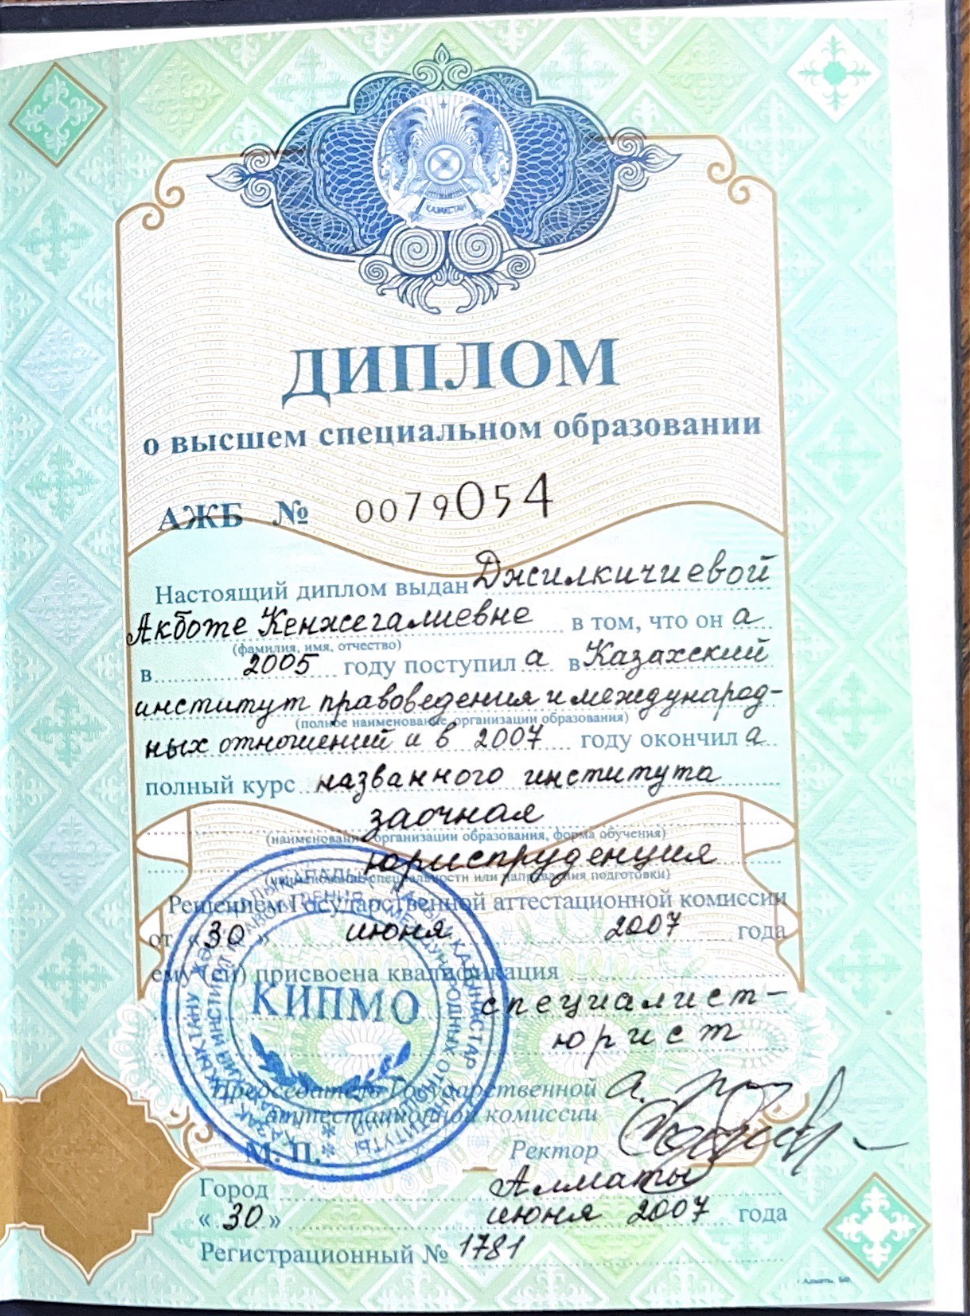 ҚАЗАҚСТАН
ДИПЛОМ
о высшем специальном образовании
АЖБ № 0079054
Настоящий диплом выдан Джилкичиевой
Акботе Кенжегалиевне в том, что он а
(фамилия, имя, отчество)
в 2005 году поступил а в Казахский
институт правоведения и международ-
(полное наименование организации образования)
ных отношений и в 2007 году окончил а
полный курс названного института
заочная
(наименование организации образования, форма обучения)
юриспруденция
(наименование специальности или направления подготовки)
Решением Государственной аттестационной комиссии
от «30» июня 2007 года
ему (ей) присвоена квалификация
специалист-
юрист
КИПМО
Председатель Государственной
аттестационной комиссии
Ректор
М. П.
Город Алматы
«30» июня 2007 года
Регистрационный № 1781